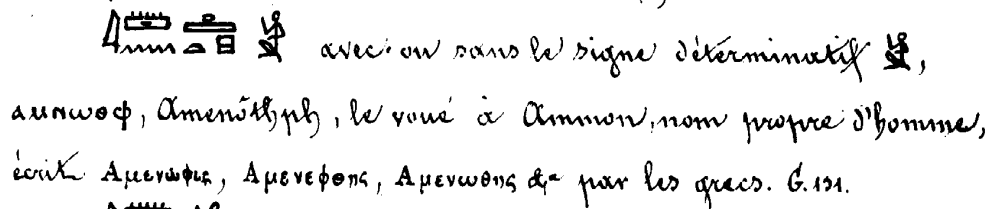 𓇋𓏠𓈖𓊵𓏏𓊪 𓀭 avec ou sans le signe déterminatif 𓀭,
ⲁⲙⲛⲱⲑⲫ, Amenôthph, le voué à Ammon, nom propre d'homme,
écrit Αμενωφις, Αμενεφθης, Αμενωθης &a par les grecs. G. 131.